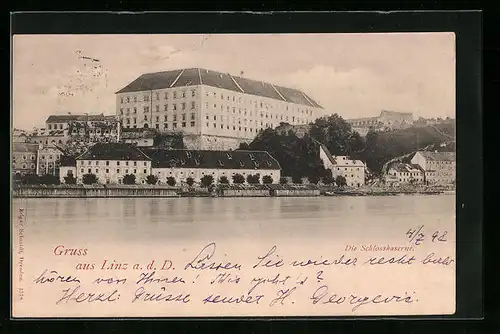 Gruss
aus Linz a. d. D.
Die Schlosskaserne.
4/7 98
Lassen Sie wieder recht bald
hören von Ihnen! Wie geht's?
Herzl. Grüsse sendet Ihnen H. Georgević.
Edgar Schmidt, Dresden.